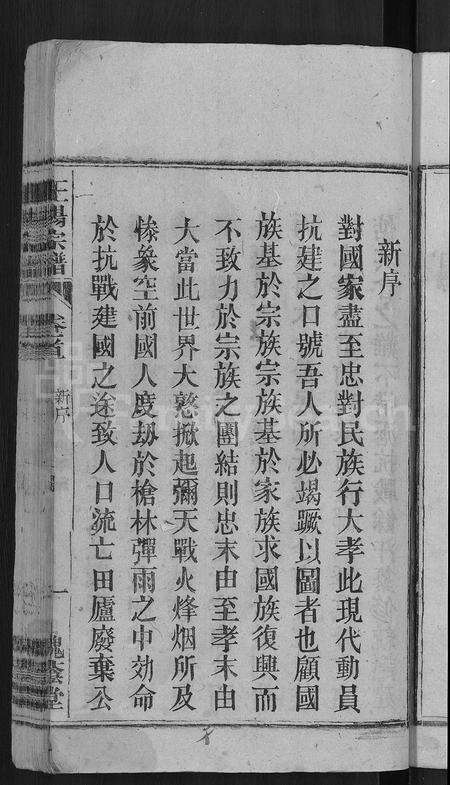 新序
對國家盡至忠對民族行大孝此現代動員
抗建之口號吾人所必竭蹶以圖者也顧國
族基於宗族宗族基於家族求國族復興而
不致力於宗族之團結則忠末由至孝末由
大當此世界大憝掀起彌天戰火烽烟所及
慘象空前國人度劫於槍林彈雨之中効命
於抗戰建國之途致人口流亡田廬廢棄公
王楊宗譜 卷首 新序 一 槐蔭堂